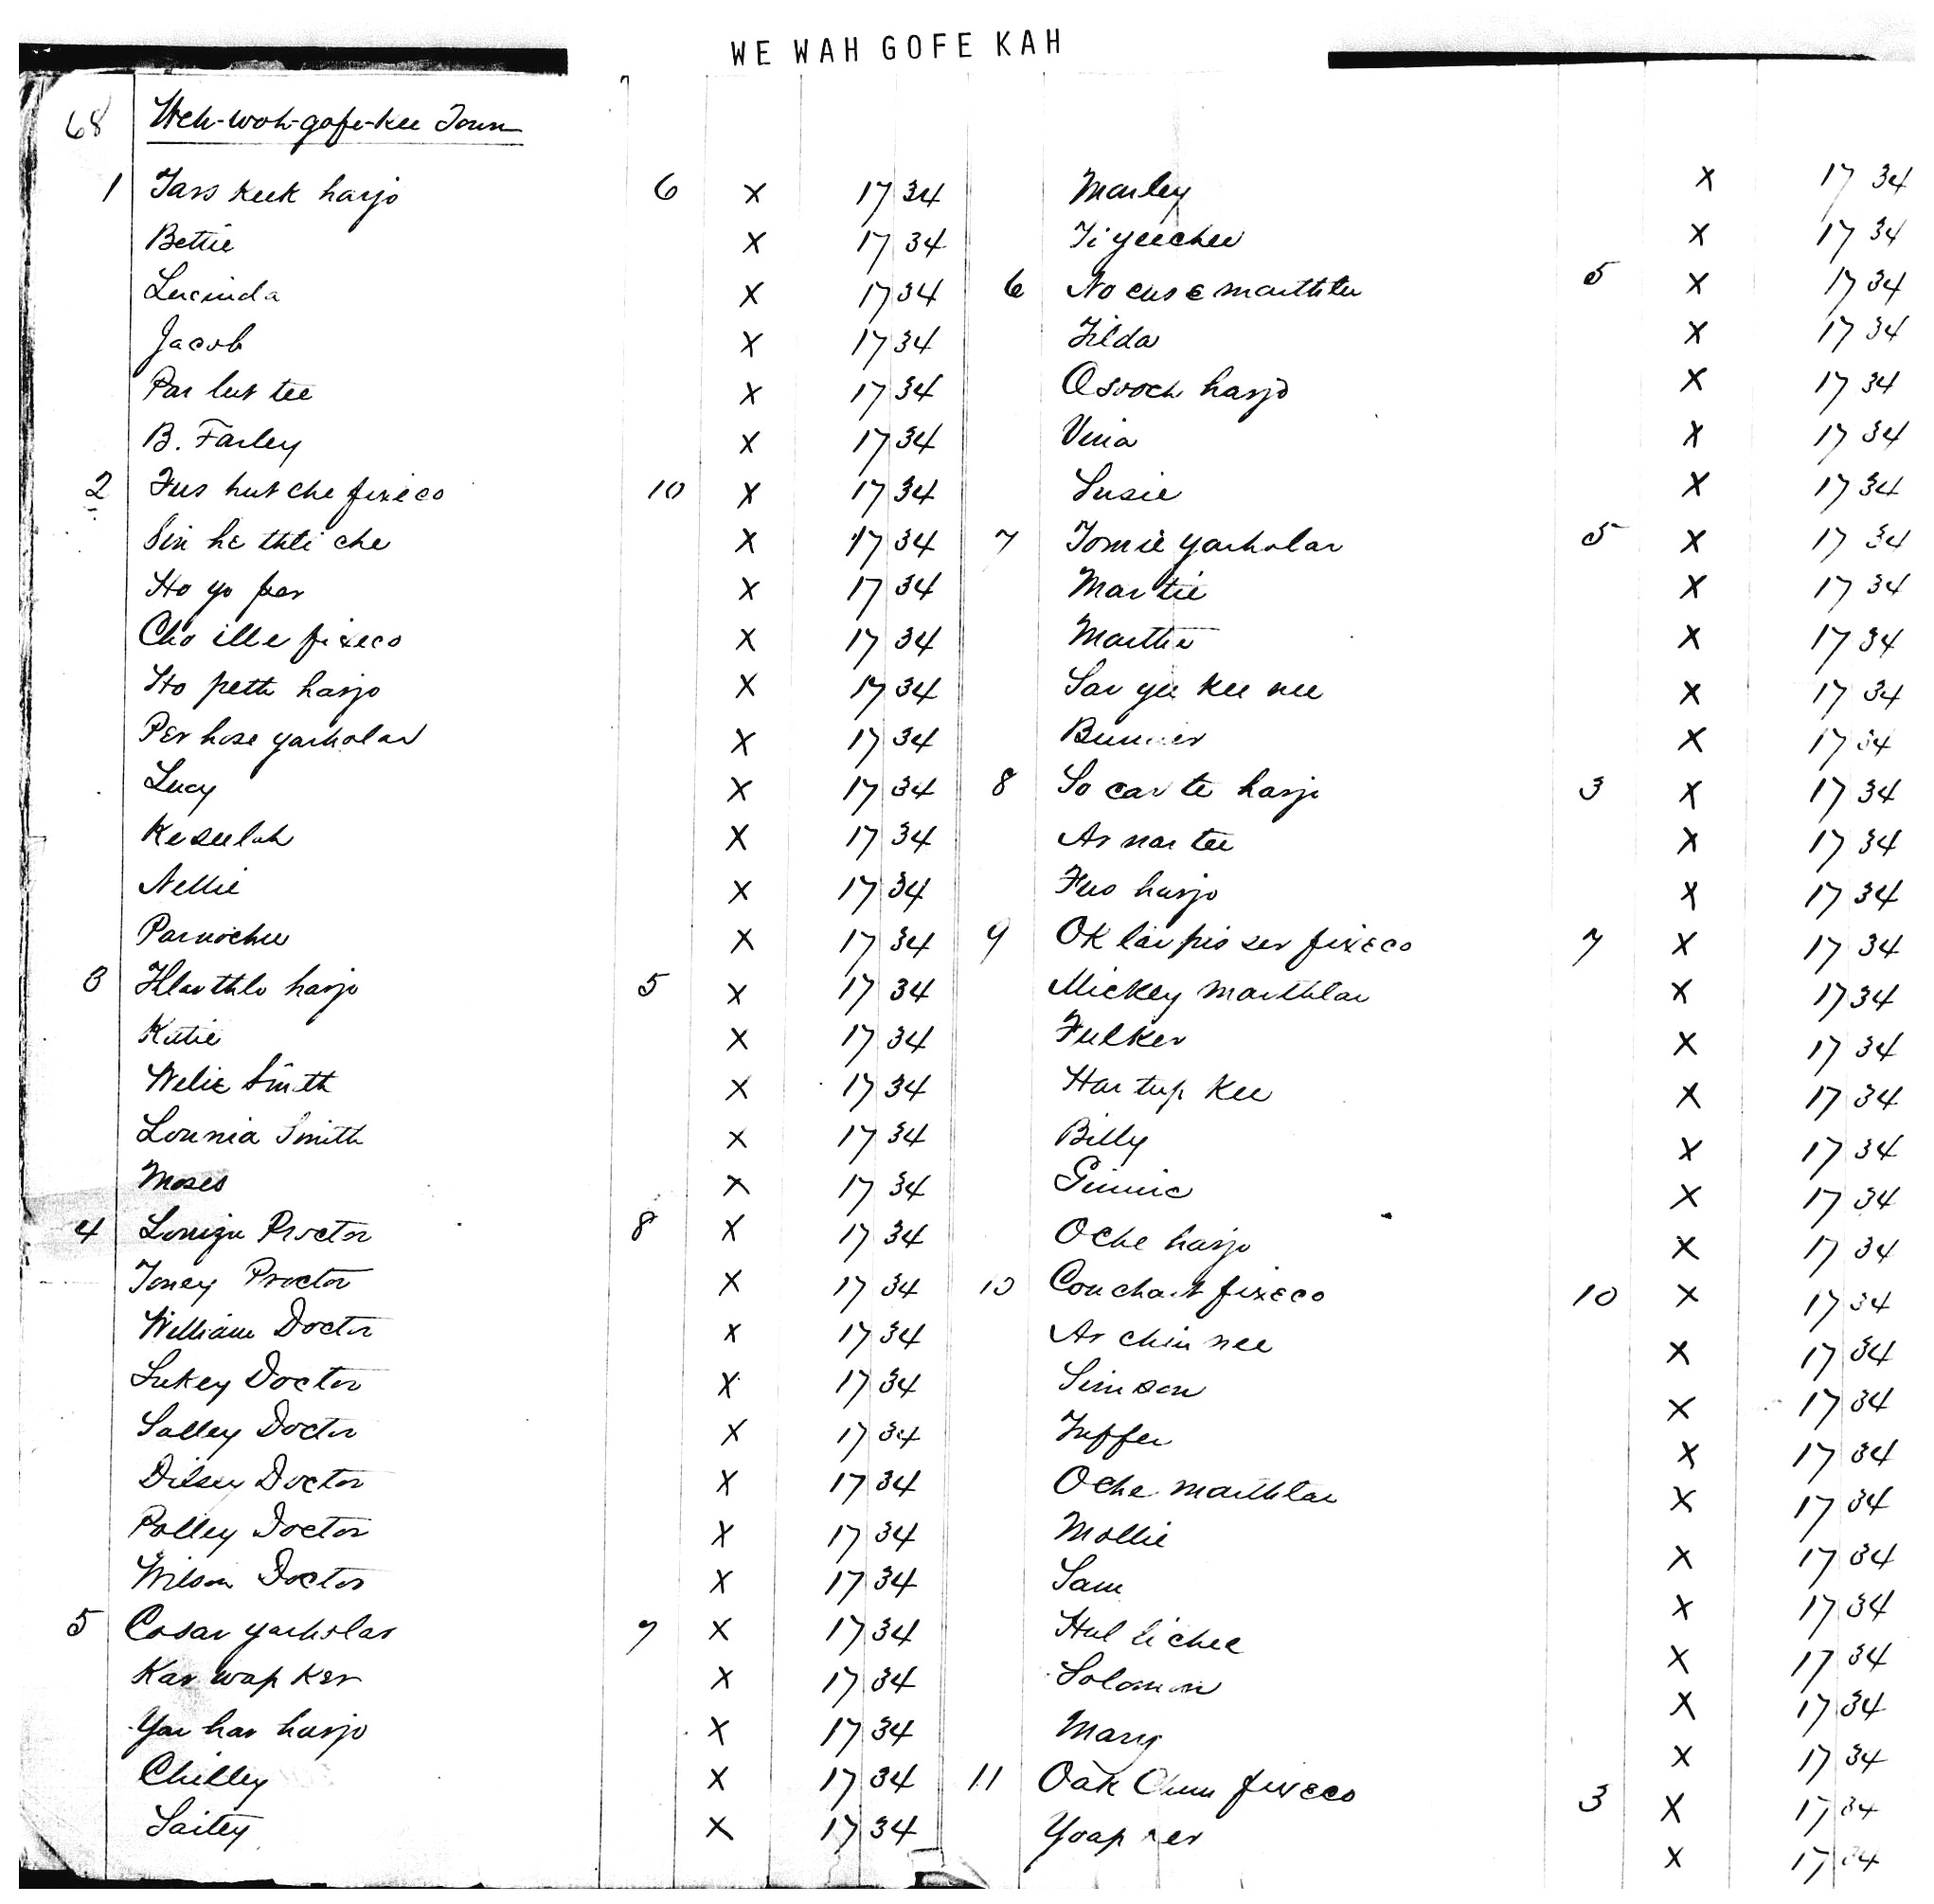 WE WAH GOFE KAH
68 Weh-woh-gofe-kee Town
1 Tars keek harjo 6 X 17 34
Bettie X 17 34
Lucinda X 17 34
Jacob X 17 34
Par lut tee X 17 34
B. Farley X 17 34
2 Fus hut che fixeco 10 X 17 34
Sin he thli che X 17 34
Ho yo par X 17 34
Cho ille fixeco X 17 34
Ho peth harjo X 17 34
Per hose yarholar X 17 34
Lucy X 17 34
Keseelah X 17 34
Nellie X 17 34
Parnochee X 17 34
3 Thlarthlo harjo 5 X 17 34
Katie X 17 34
Welie Smith X 17 34
Lounia Smith X 17 34
Moses X 17 34
4 Louiza Proctor 8 X 17 34
Toney Proctor X 17 34
William Doctor X 17 34
Lukey Doctor X 17 34
Salley Doctor X 17 34
Dilsey Doctor X 17 34
Polley Doctor X 17 34
Wilson Doctor X 17 34
5 Cosar yarholar 7 X 17 34
Kar wap ker X 17 34
Yar har harjo X 17 34
Chilley X 17 34
Saitey X 17 34
Marley X 17 34
Ti yeechee X 17 34
6 No cus e marthlee 5 X 17 34
Tilda X 17 34
Osooch harjo X 17 34
Vina X 17 34
Susie X 17 34
7 Tomie yarholar 5 X 17 34
Martie X 17 34
Marthe X 17 34
Sar yee kee nee X 17 34
X 17 34
8 So car te harjo 3 X 17 34
Ar nar tee X 17 34
Fus harjo X 17 34
9 Ok lar pis ser fixeco 7 X 17 34
Mickey marthlar X 17 34
Fulker X 17 34
Har tup kee X 17 34
Billy X 17 34
Ginnie X 17 34
Oche harjo X 17 34
10 Conchart fixeco 10 X 17 34
Ar chin nee X 17 34
Simson X 17 34
Tuffer X 17 34
Oche marthlar X 17 34
Mollie X 17 34
Sam X 17 34
Hul lichee X 17 34
Solomon X 17 34
Mary X 17 34
11 Oak Chun fixeco 3 X 17 34
X 17 34